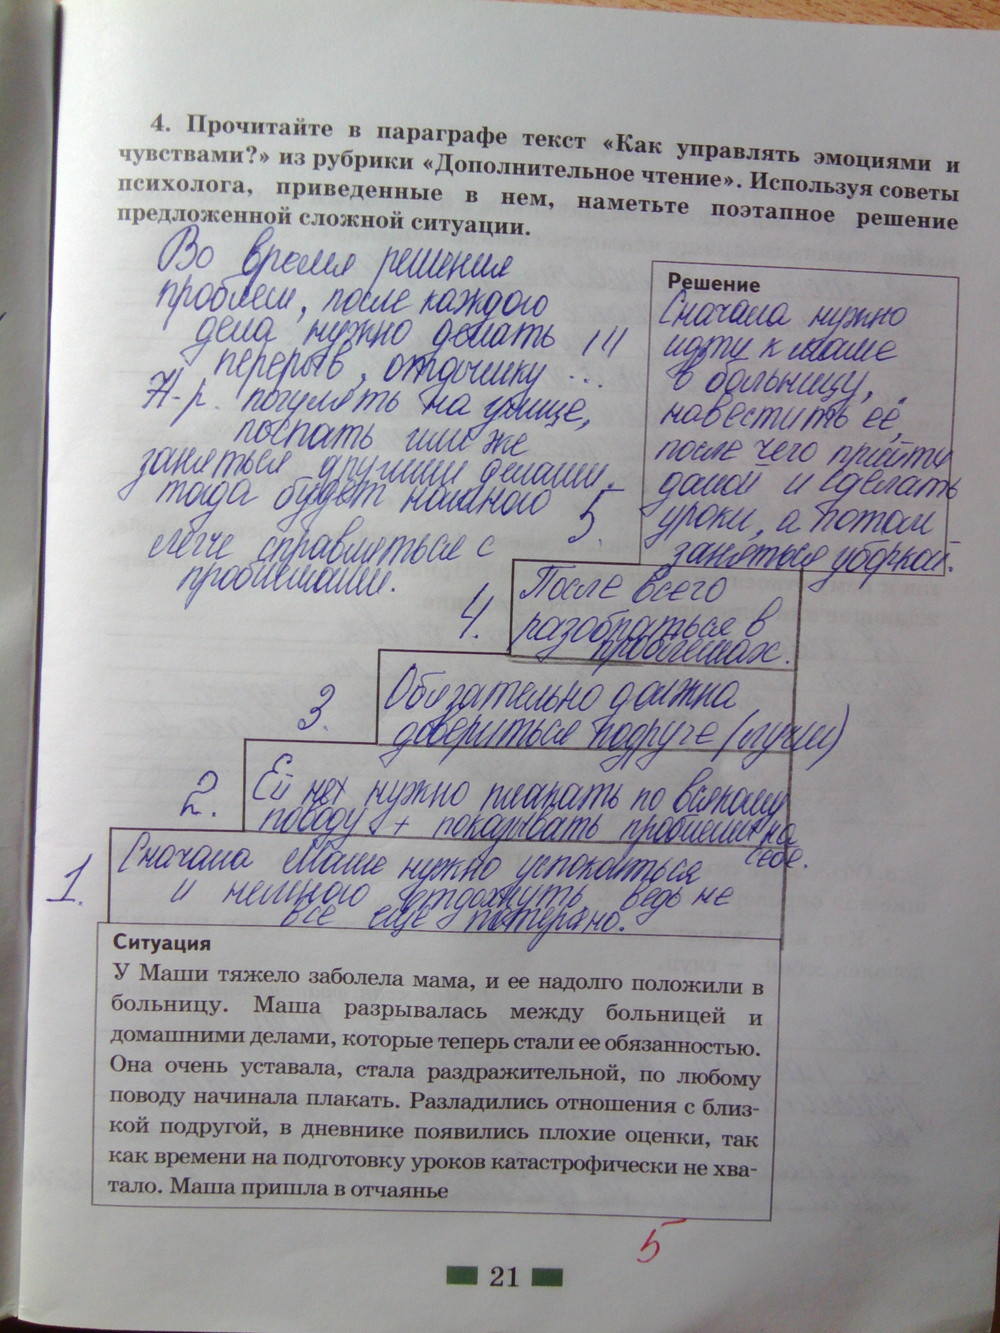 4. Прочитайте в параграфе текст «Как управлять эмоциями и
чувствами?» из рубрики «Дополнительное чтение». Используя советы
психолога, приведенные в нем, наметьте поэтапное решение
предложенной сложной ситуации.
Во время решения
проблем, после каждого
дела нужно делать
перерыв, отдышку ...
Н-р. погулять на улице,
поспать или же
заняться другими делами.
тогда будет намного
легче справляться с
проблемами.
Решение
Сначала нужно
идти к маме
в больницу,
навестить её,
после чего прийти
домой и сделать
уроки, а потом
заняться уборкой.
5.
4.
После всего
разобраться в
проблемах.
3.
Обязательно должна
довериться подруге (лучш)
2.
Ей не нужно плакать по всякому
поводу + показывать проблемы на
себе.
1.
Сначала Маше нужно успокоиться
и немного отдохнуть ведь не
все ещё потеряно.
Ситуация
У Маши тяжело заболела мама, и ее надолго положили в
больницу. Маша разрывалась между больницей и
домашними делами, которые теперь стали ее обязанностью.
Она очень уставала, стала раздражительной, по любому
поводу начинала плакать. Разладились отношения с близ-
кой подругой, в дневнике появились плохие оценки, так
как времени на подготовку уроков катастрофически не хва-
тало. Маша пришла в отчаянье
5
21